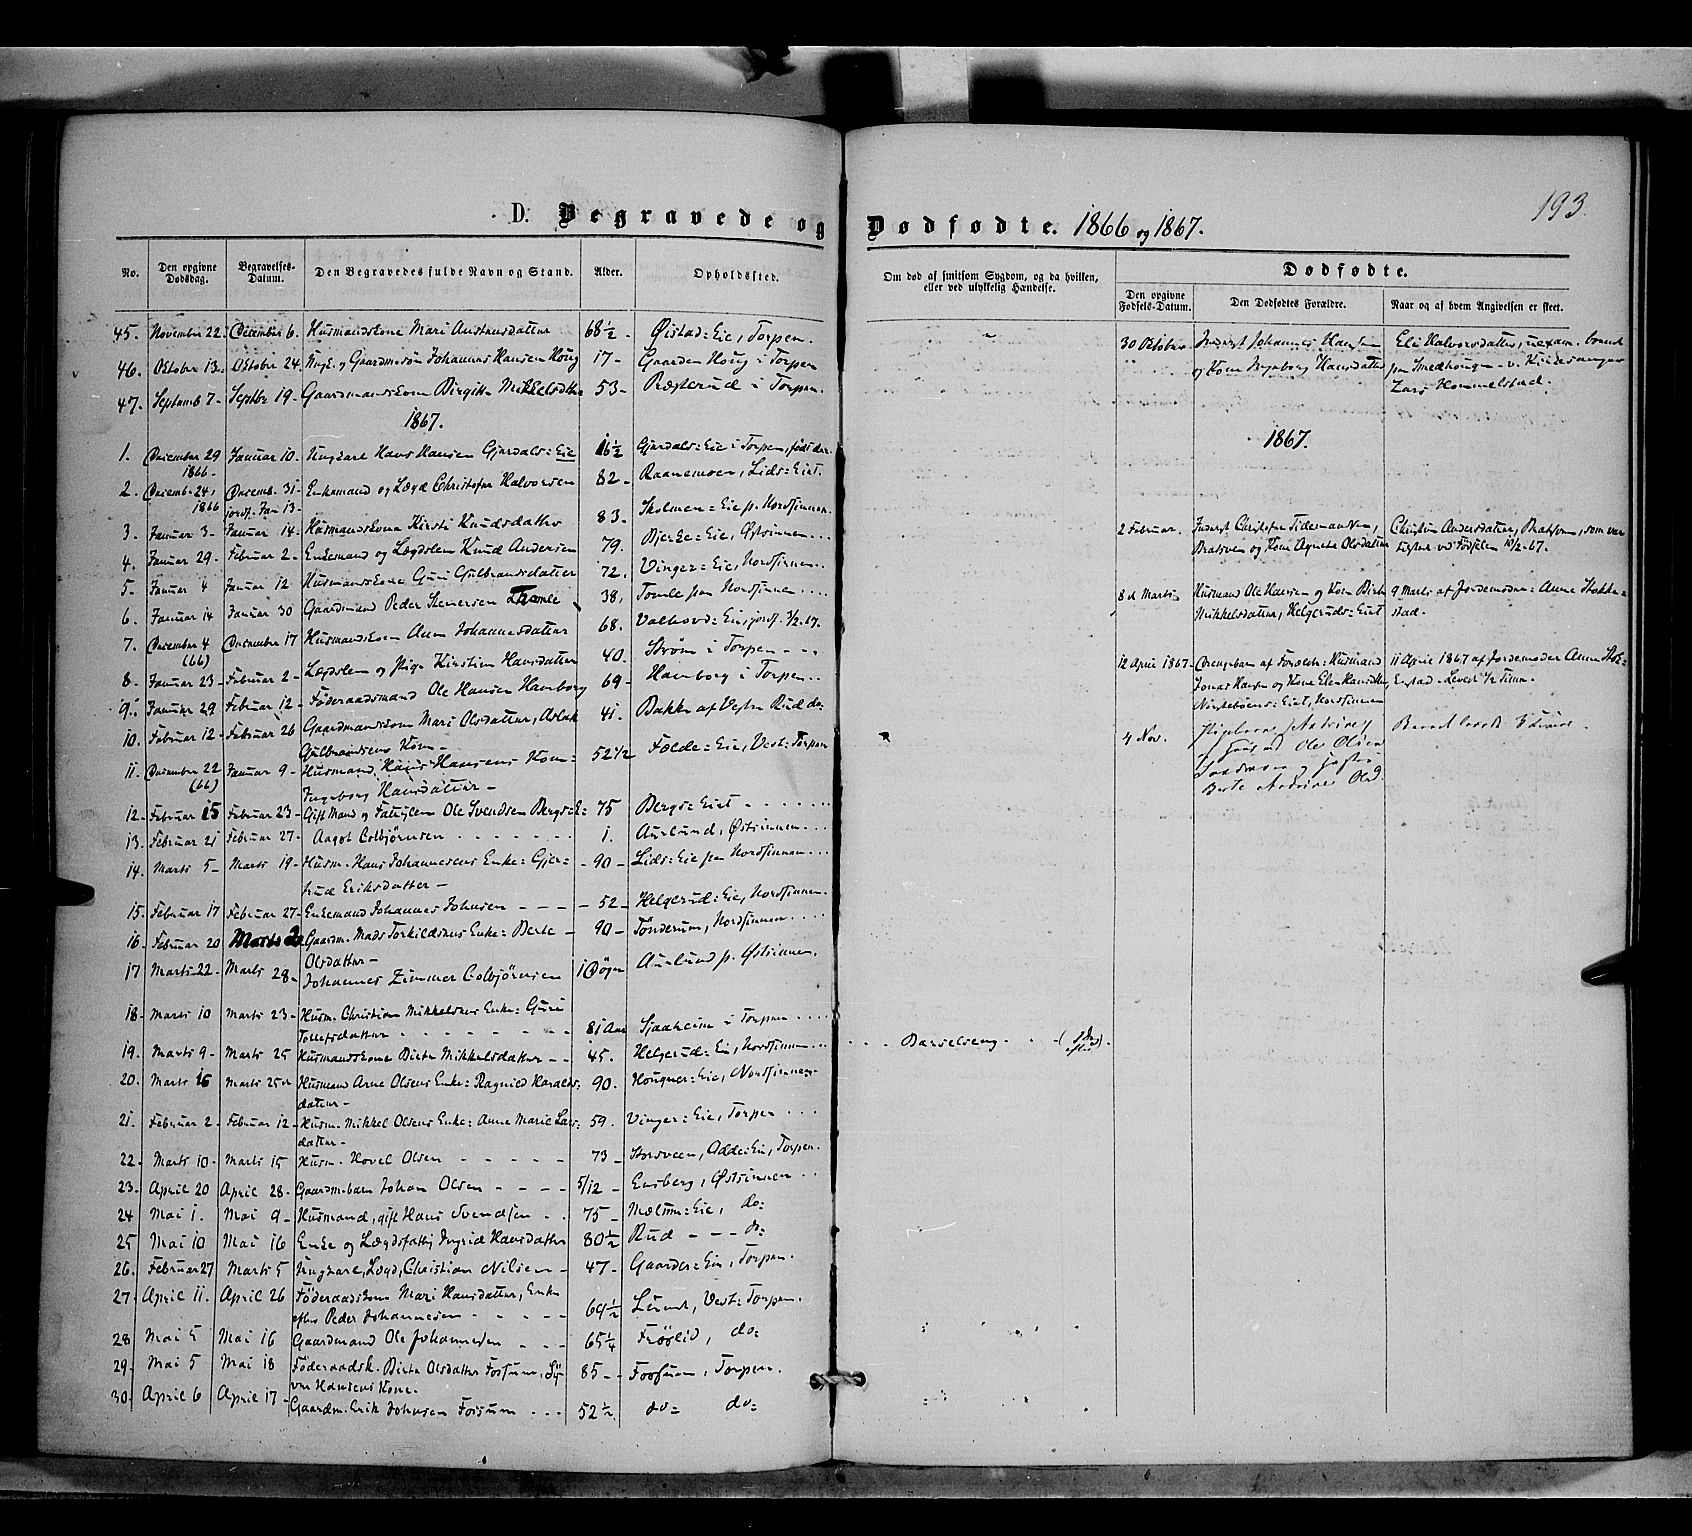 193.
D. Begravede og Dødfødte. 1866 og 1867.
No. Den opgivne Dødsdag. Begravelses-Datum. Den Begravedes fulde Navn og Stand. Alder. Opholdssted.
Om død af smitsom Sygdom, og da hvilken, eller ved ulykkelig Hændelse.
Dødfødte.
Den opgivne Fødsels-Datum. Den Dødfødtes Forældre. Naar og af hvem Angivelsen er skeet.
45. November 22. December 6. Husmandskone Mari Amundsdatter 68 1/2 - Øistad=Eie, Torpen.
46. Oktober 13. Oktober 24. Ungk. og Gaardmesøn Johannes Hansen Houg 17 - Gaarden Houg i Torpen
47. Septemb 7 - Septbr 19 - Gaardmandskone Birgitte Mikkelsdtr 53 - i Torpen.
1867.
1. December 29 1866 - Januar 10. Ungkare Hans Hansen Gjerdals=Eie 16 1/2 Gjerdals=Eie i Torpen, født der.
2. Decemb. 24, 1866 Decemb. 31 - jordf. Jan 13 - Enkemand og Lægd Christofer Halvorsen 82 - Raanemoen, Lids=Eiet.
3. Januar 3 - Januar 14 - Husmandskone Kirsti Knudsdatter 83. Skolmen=Eie p. Nordsinnen
4. Januar 29 - Februar 2 - Enkemand og Lægdslem Knud Andersen 79. Bjerke=Eie, Østsinnen
5. Januar 4 Januar 12 Husmandskone Guri Gulbrandsdatter 72. Vinger=Eie, Nordsinnen
6. Januar 14 Januar 30 Gaardmand Peder Stenersen Tomle 38, Tomle paa Nordsinnen
7. December 4 (66) December 17 Husmandskone Anne Johannesdatter 68. jordf. 3/2. 67.
8. Januar 23 - Februar 2 - Lægdslem og Pige Kirstine Hansdatter 40. Strøm i Torpen
9. Januar 29 Februar 12 - Føderaadsmand Ole Hansen Hamborg 69 - Hamborg i Torpen
10. Februar 12 - Februar 26 Gaardmandskone Mari Olsdatter, Aslak Gulbrandsens Kone - 41. Bakke af Vestre Rud do.
11. December 22 (66) Januar 9 - Husmand Hans Hansens Kone Ingeborg Hansdatter - 52 1/2 Fælde=Eie, Vest=Torpen
12 - Februar 15 Februar 23 - Gift Mand og Fattiglem Ole Svendsen Bergs=E: 75 Bergs=Eiet
13. Februar 21 Februar 27 - Aagot Colbjørnsen 1. Aurlund, Østsinnen
14. Marts 5 - Marts 19 - Husm. Hans Johannesens Enke= Gjertrud Eriksdatter - 90 - Lids=Eie paa Nordsinnen
15. Februar 17 Februar 27 - Enkemand Johannes Johnsen 52 - Helgerud=Eie, Nordsinnen
16. Februar 20 Marts 2 Gaardm. Mads Torkildsens Enke= Berte Olsdatter - 90 - Tønderum, Nordsinnen
17 Marts 22 - Marts 28 - Johannes Zimmer Colbjørnsen 1 Døgn Aurlund p. Østsinnen.
18 - Marts 10 Marts 23 - Husm. Christian Mikkelsens Enke= Guri Tollefsdatter 81 Aar Sjaaheim i Torpen
19. Marts 9 - Marts 25 Husmandskone Birte Mikkelsdatter 45. Helgerud=Eie, Nordsinnen Barselseng
20. Marts 16 Marts 25 Husmand Arne Olsens Enke= Ragnild Haraldsdatter - 90. Hougner=Eie, Nordsinnen
21. Februar 2 - Februar 12 - Husm. Mikkel Olsens Enke= Anne Marie Larsdatter - 59. Vinger=Eie, Torpen
22. Marts 10 - Marts 15 Husm. Hovel Olsen 73 - Storsveen, Odde=Eie, Torpen.
23. April 20 April 28 - Gaardm.barn Johan Olsen 5/12 - Ensberg, Østsinnen
24 Mai 1. Mai 9 - Husmand, gift Hans Svendsen 75 - Mælum=Eie, do=
25 Mai 10 Mai 16 Enke og Lægdsfattig Ingrid Hansdatter 80 1/2 Rud do=
26. Februar 27 Marts 5 Ungkare, Lægd, Christian Nilsen - 47 - Gaarder=Eie, Torpen.
27. April 11. April 26 Føderaadskone Mari Hansdatter, Enke efter Peder Johannesen 64 1/2 Lunde, Vest=Torpen.
28 Mai 5 Mai 16 Gaardmand Ole Johannesen 65 1/4 Frøslid, do=
29. Mai 5 Mai 18 Føderaadsk. Birte Olsdatter Fossum, Syver Hansens Kone. 85 - Fossum, Torpen.
30. April 6 April 17 - Gaardm. Erik Johnsen Fossum 52 1/2 do= do=
30 Oktober Inderst Johannes Hansen og Kone Ingeborg Hansdatter Eli Halvorsdatter, uexam. paa Smedhougen v. Kirkesanger Lars Hommelstad.
1867.
2 Februar. Inderst Christofer Tidemandsen, Bratsveen og Kone Agnete Olsdatter Christine Andersdatter, Bratsveen, som var tilstede ved Fødselen 10/2 - 67.
8de Marts Husmand Ole Hansen og Kone Birte Mikkelsdatter, Helgeruds=Eiet 9 Marts af Jordemoder Anne Stokkestad.
12 April 1867 - Drengebarn af Forældr: Husmand Jonas Hansen og Kone Eline Hansdtr, Nordsinnen 11 April 1867 af Jordemoder Anne Stokkestad - Levet 1/2 Time.
4 Nov. Pigebarn af Ole Olsen og hustru Berte Andrine Olsd.